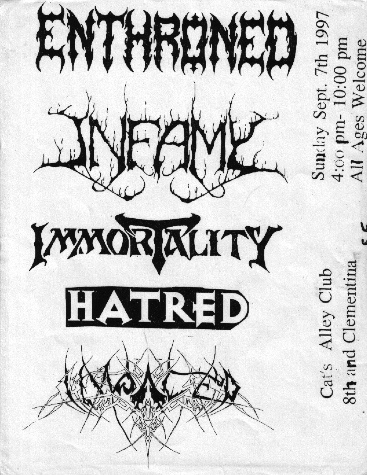 ENTHRONED
INFAMY
IMMORTALITY
HATRED
IMPALED
Sunday Sept. 7th 1997
4:00 pm- 10:00 pm
All Ages Welcome
Cat's Alley Club
8th and Clementina